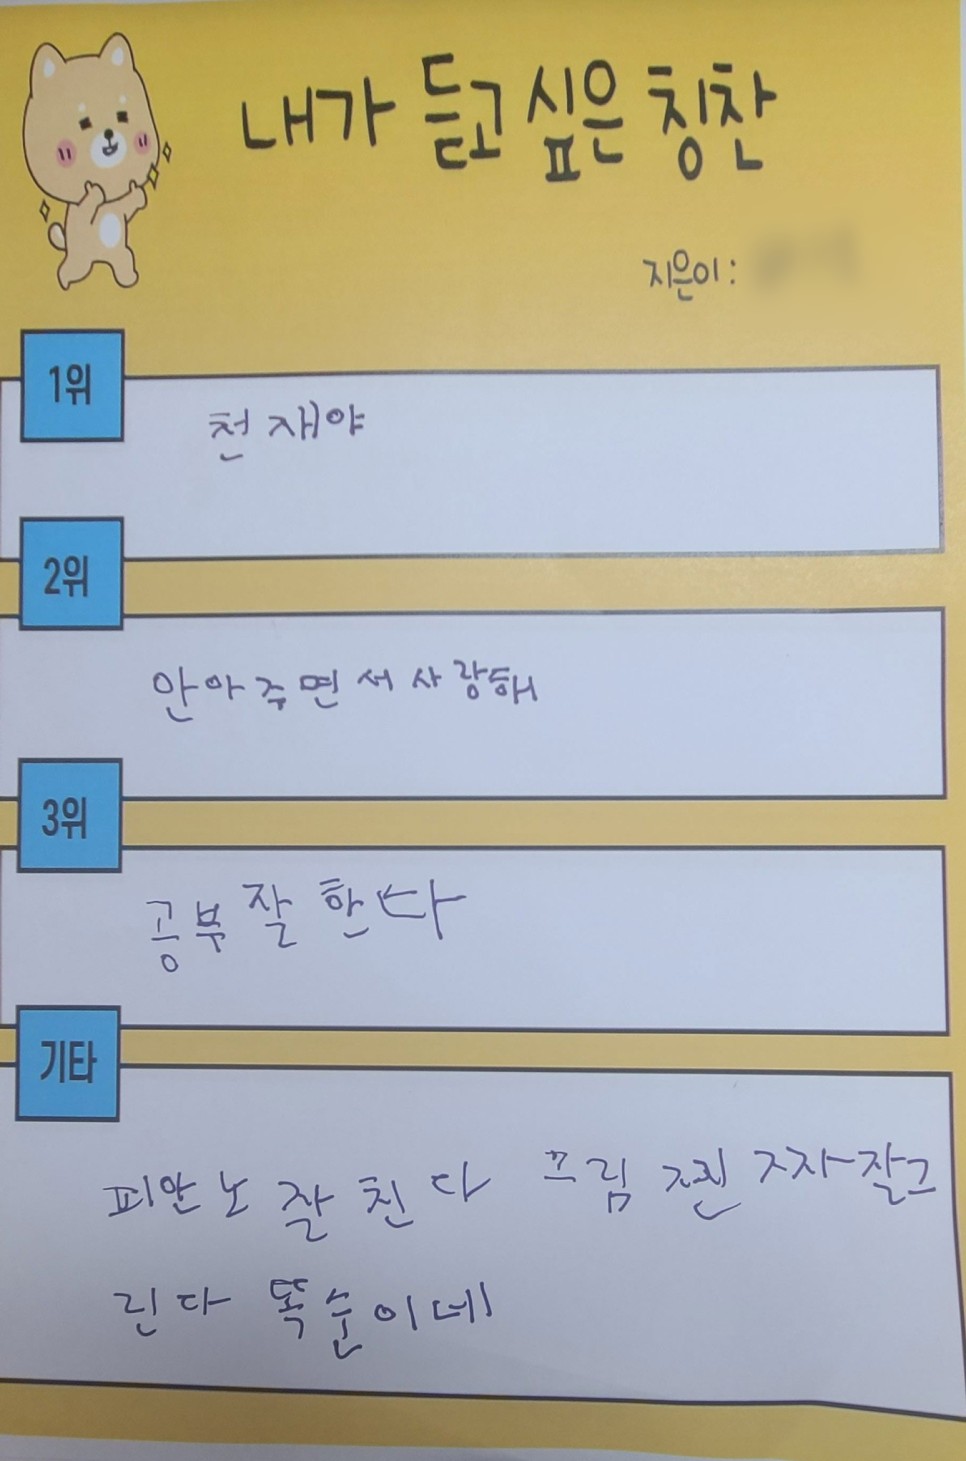 내가 듣고 싶은 칭찬
지은이:
1위
천재야
2위
안아주면서 사랑해
3위
공부 잘 한다
기타
피안노 잘 친다 그림 찐 짜잘그
린다 똑순이네